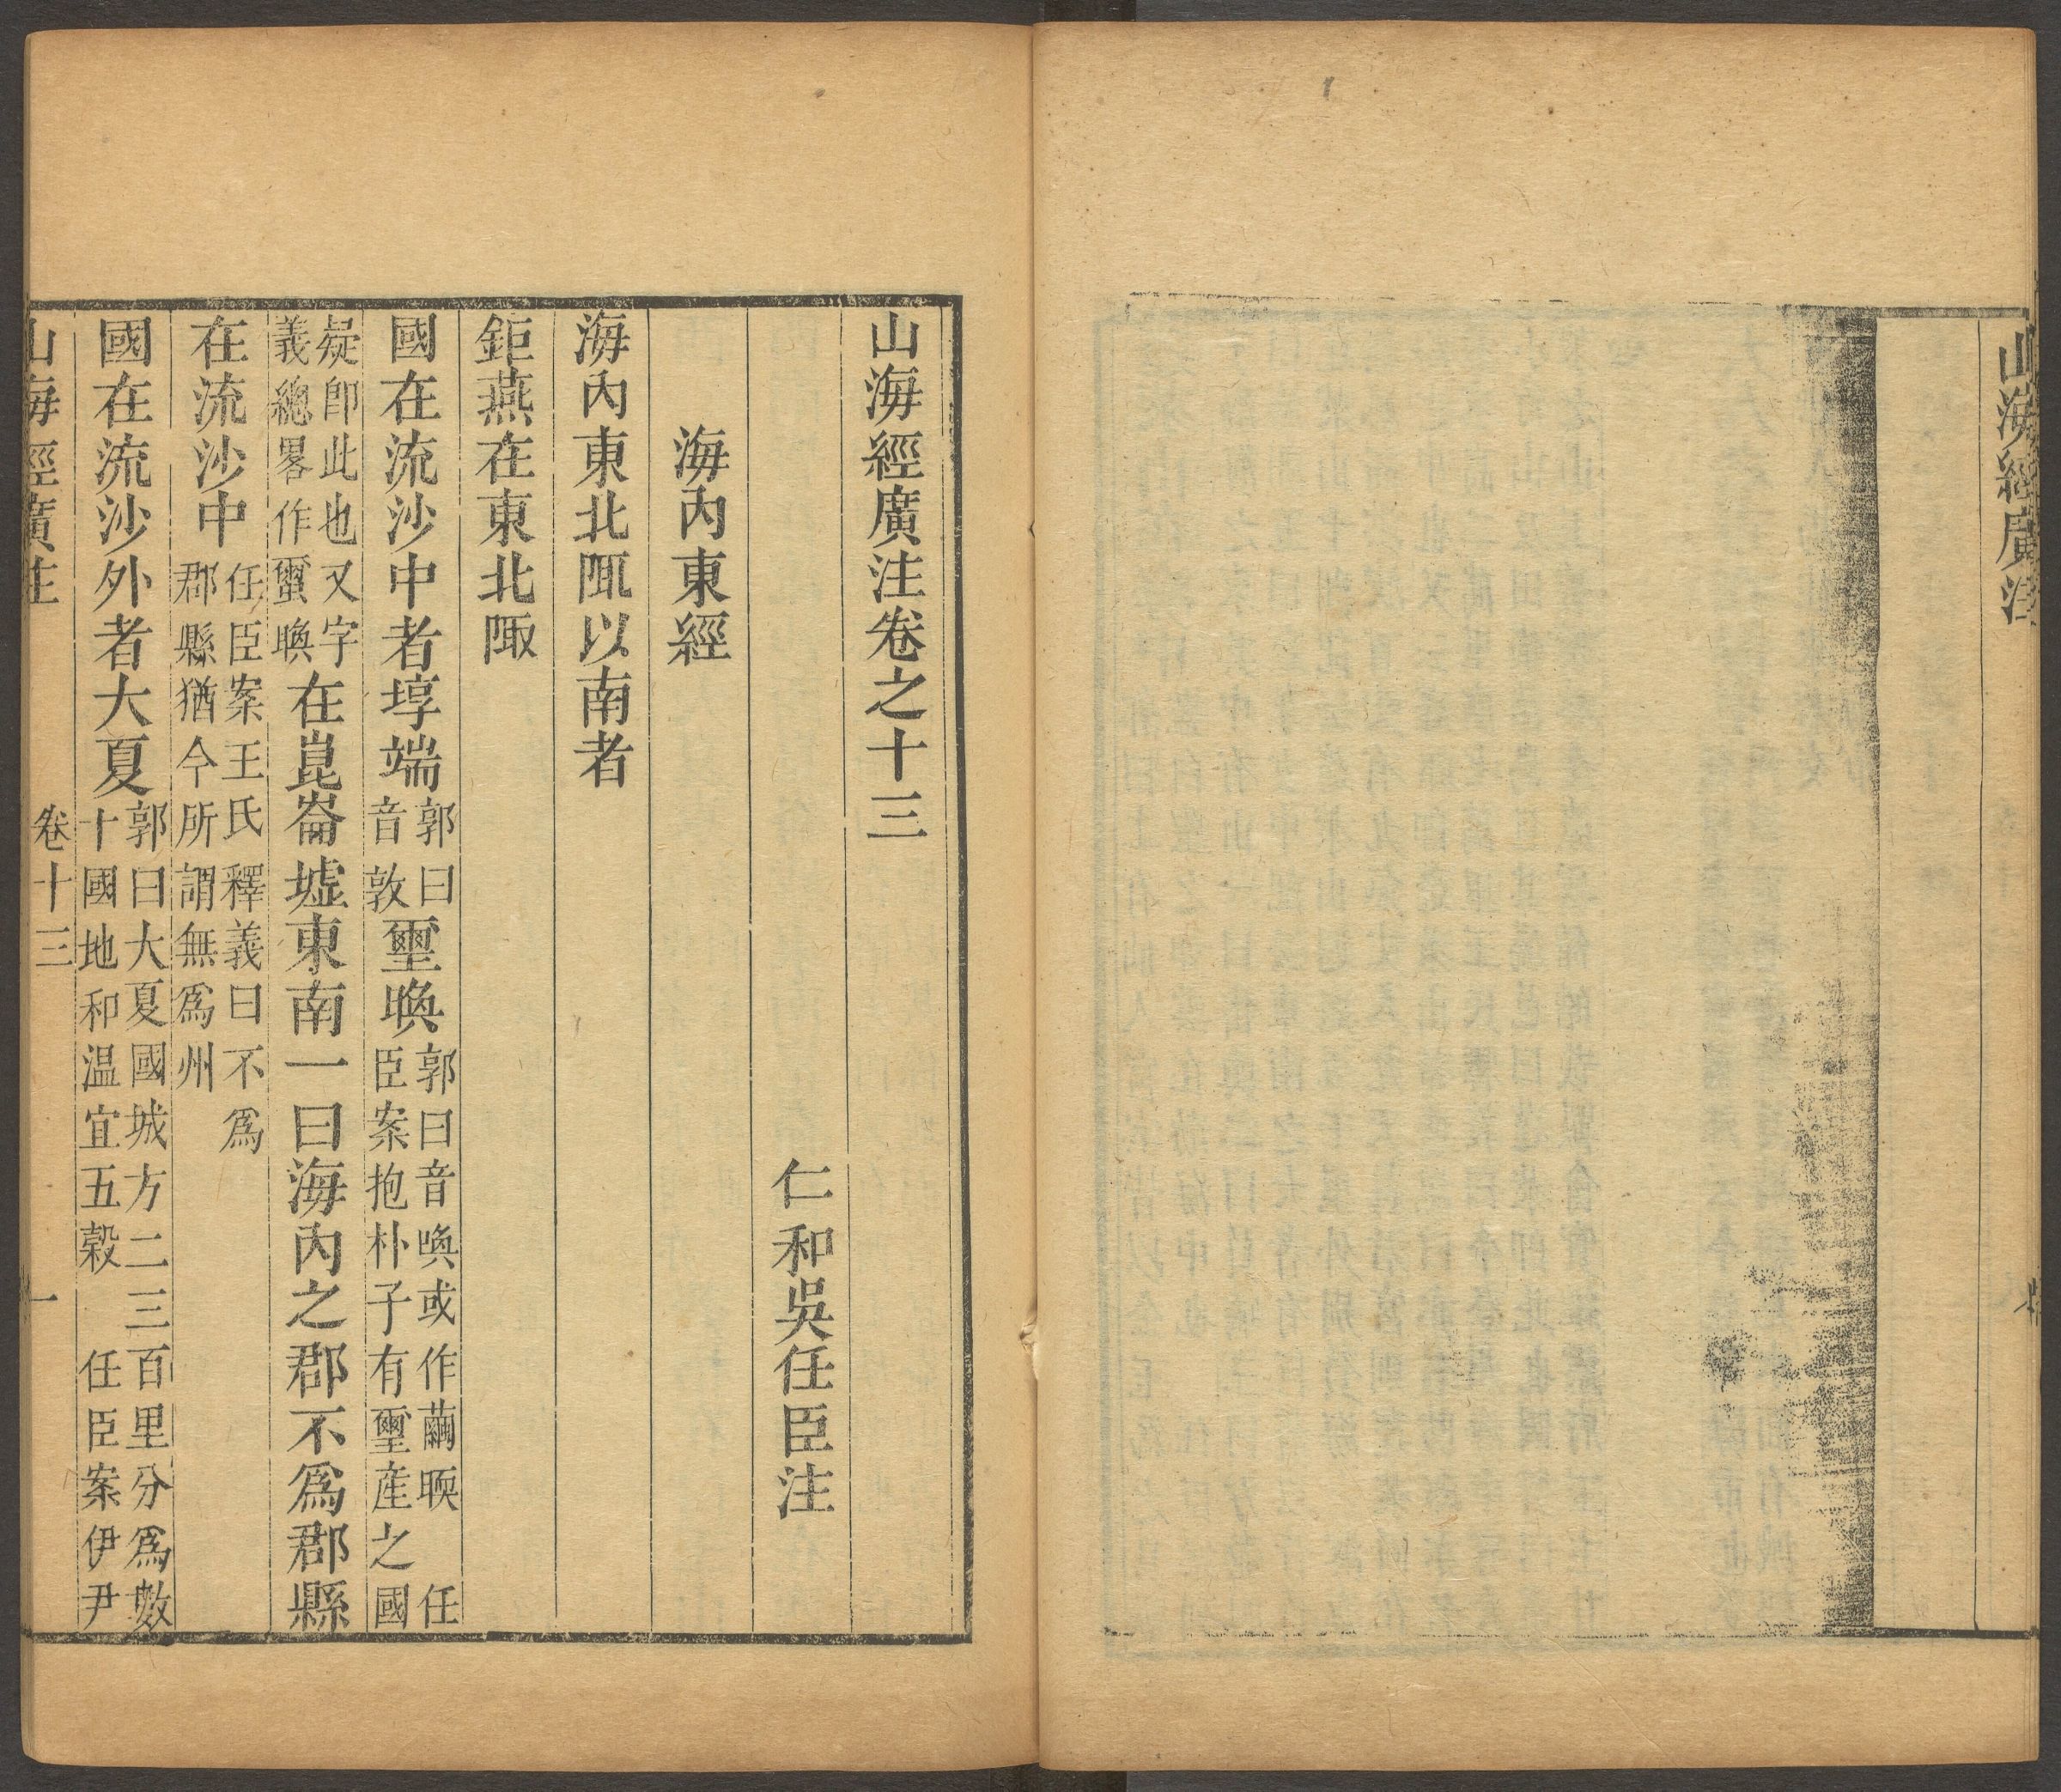 山海經廣注
山海經廣注卷之十三
仁和吳任臣注
海內東經
海內東北陬以南者
鉅燕在東北陬
國在流沙中者埻端郭曰音敦璽㬇郭曰音喚或作繭㬇 任臣案抱朴子有璽産之國
疑卽此也又字義總畧作䘉㬇在崑崙墟東南一曰海內之郡不爲郡縣
在流沙中任臣案王氏釋義曰不爲郡縣猶今所謂無爲州
國在流沙外者大夏郭曰大夏國城方二三百里分爲數十國地和温宜五穀 任臣案伊尹
山海經廣注 卷十三 一